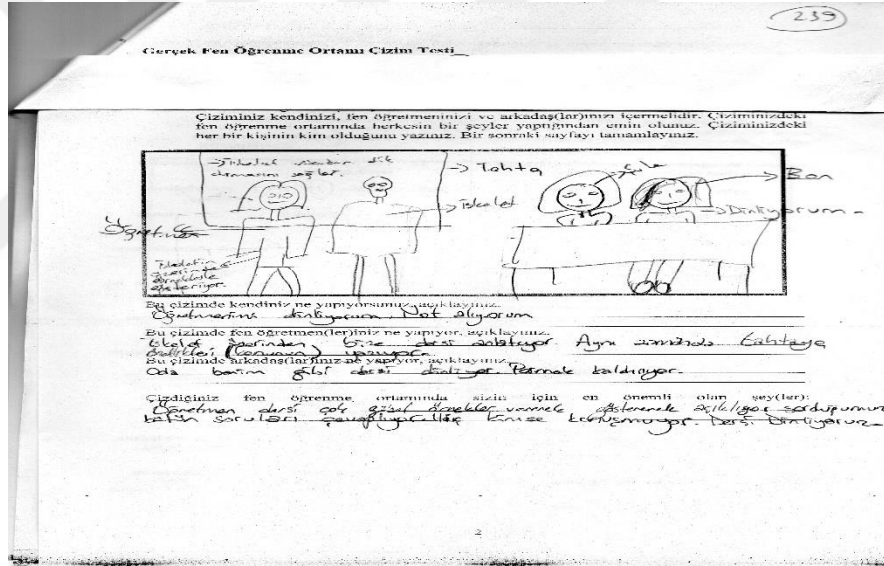 239
Gerçek Fen Öğrenme Ortamı Çizim Testi
Çiziminiz kendinizi, fen öğretmeninizi ve arkadaş(lar)ınızı içermelidir. Çiziminizdeki
fen öğrenme ortamında herkesin bir şeyler yaptığından emin olunuz. Çiziminizdeki
her bir kişinin kim olduğunu yazınız. Bir sonraki sayfayı tamamlayınız.
→ İskelet dik
durmasını sağlar.
→ Tahta
→ İskelet
Öğretmen
İskeletin
üzerinde
gösteriyor.
→ Ben
→ Dinliyorum
Bu çizimde kendiniz ne yapıyorsunuz, açıklayınız.
Öğretmenimi dinliyorum. Not alıyorum
Bu çizimde fen öğretmen(ler)iniz ne yapıyor, açıklayınız.
İskelet üzerinden bize dersi anlatıyor. Aynı zamanda tahtaya
yazıyor.
Bu çizimde arkadaş(lar)ınız ne yapıyor, açıklayınız.
Oda benim gibi dersi dinliyor. Parmak kaldırıyor.
Çizdiğiniz fen öğrenme ortamında sizin için en önemli olan şey(ler):
Öğretmen dersi çok güzel örnekler vererek göstererek açıklıyor sorduğumuz
bütün soruları cevaplıyor. Hiç kimse konuşmuyor. Dersi Dinliyoruz
2